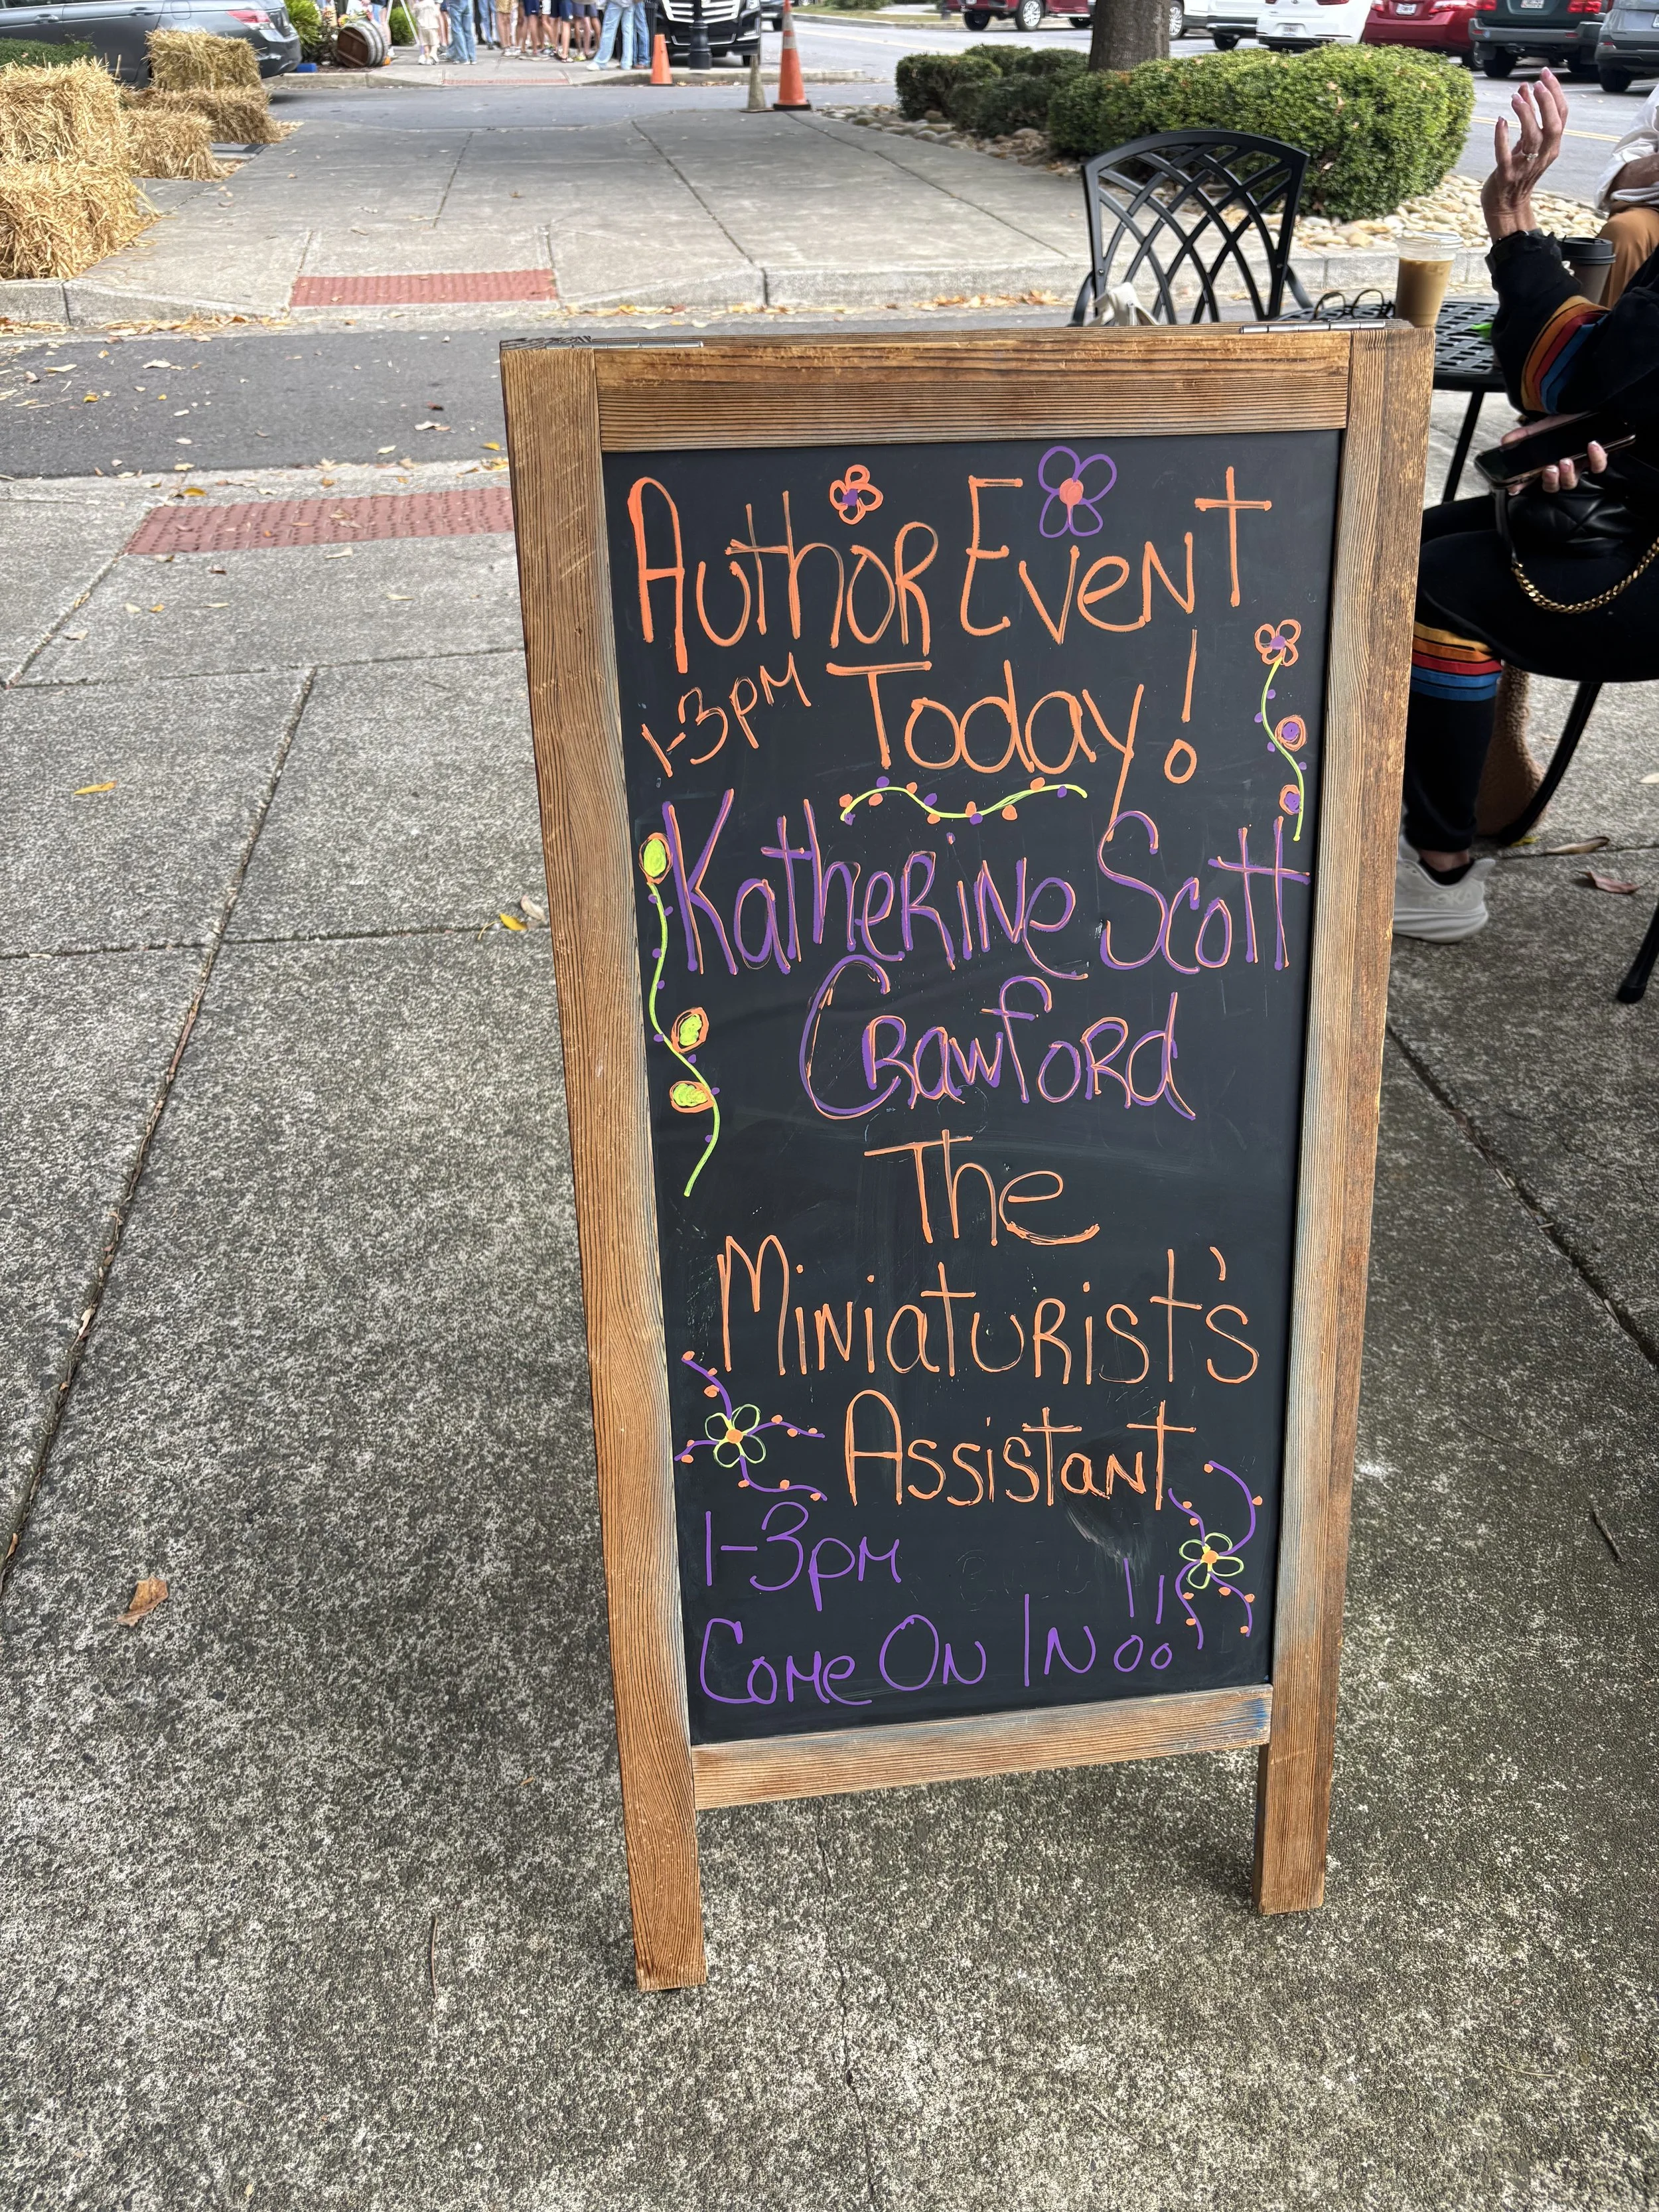 Author Event
1-3pm Today!
Katherine Scott
Crawford
The
Miniaturist's
Assistant
1-3pm
Come On In!!